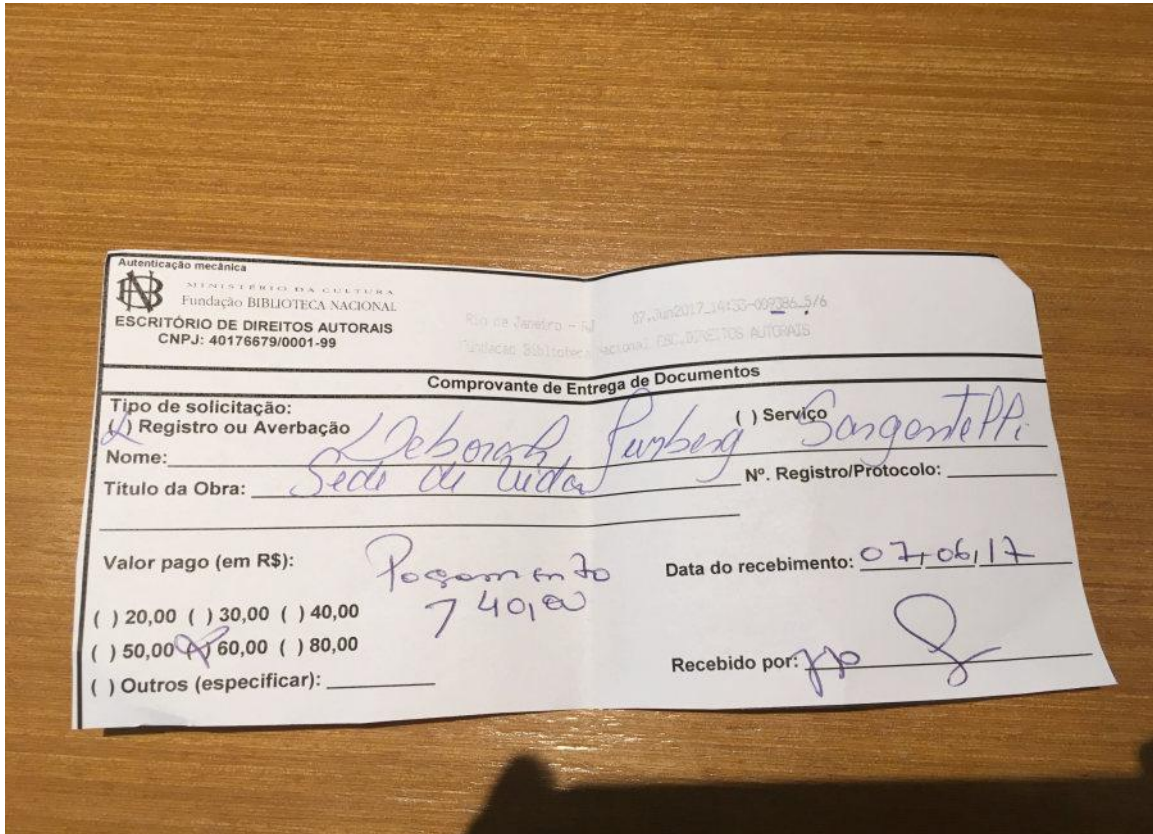 Autenticação mecânica
MINISTÉRIO DA CULTURA
Fundação BIBLIOTECA NACIONAL
ESCRITÓRIO DE DIREITOS AUTORAIS
CNPJ: 40176679/0001-99
Rio de Janeiro - RJ 07.Jun2017_14:33-009386_5/6
Fundacao Biblioteca Nacional ESC.DIREITOS AUTORAIS
Comprovante de Entrega de Documentos
Tipo de solicitação:
(X) Registro ou Averbação ( ) Serviço
Nome: Deborah Sargentelli
Título da Obra: Sede de Vida Nº. Registro/Protocolo:
Valor pago (em R$): Pagamento
740,00
Data do recebimento: 07,06,17
( ) 20,00 ( ) 30,00 ( ) 40,00
( ) 50,00 (X) 60,00 ( ) 80,00
( ) Outros (especificar):
Recebido por: